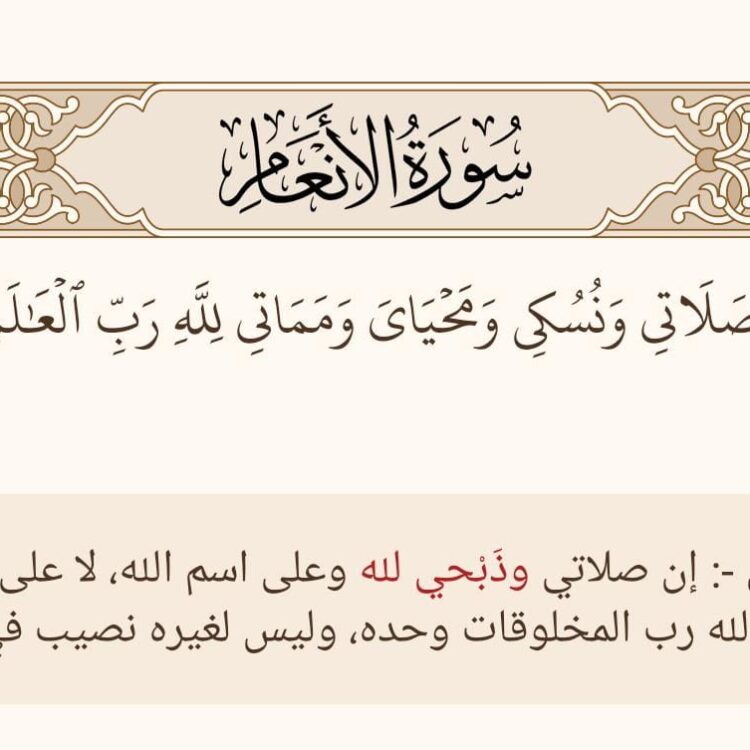 سُورَةُ الأَنْعَامِ
صَلَاتِي وَنُسُكِي وَمَحْيَايَ وَمَمَاتِي لِلَّهِ رَبِّ
-: إن صلاتي وذَبْحي لله وعلى اسم الله، لا على
لله رب المخلوقات وحده، وليس لغيره نصيب في